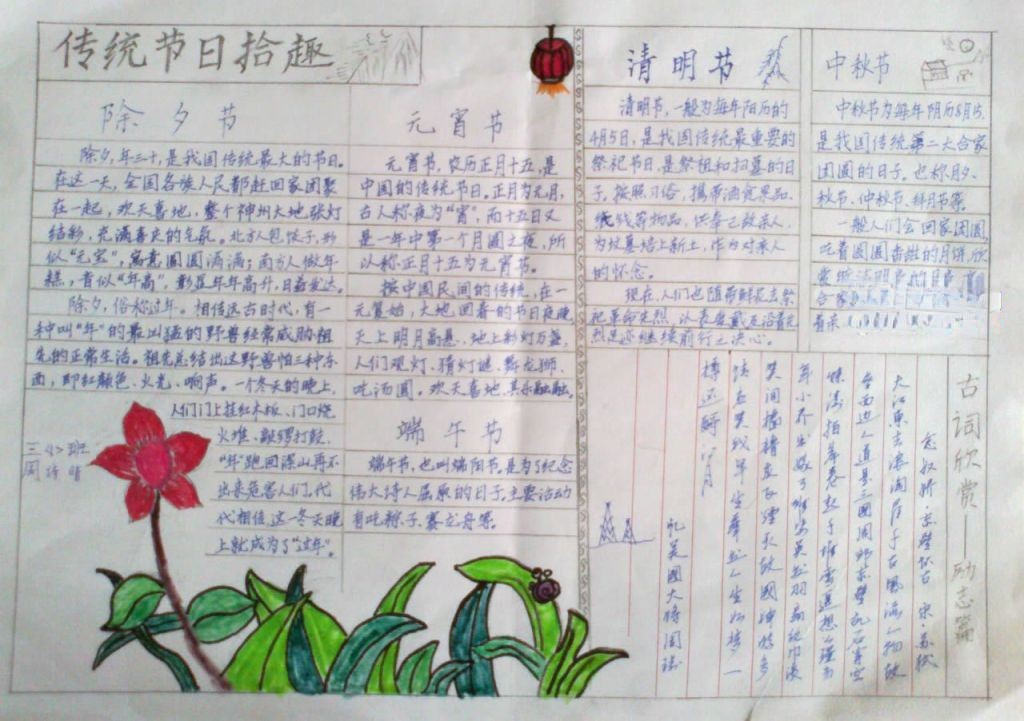 传统节日拾趣
除夕节
除夕,年三十,是我国传统最大的节日。
在这一天,全国各族人民都赶回家团聚
在一起,欢天喜地,整个神州大地张灯
结彩,充满喜庆的气氛。北方人包饺子,形
似“元宝”,寓意圆圆满满;南方人做年
糕,音似“年高”,彰显年年高升,日益发达。
除夕,俗称过年。相传远古时代,有一
种叫“年”的最凶猛的野兽经常威胁祖
先的正常生活。祖先总结出这野兽怕三种东
西,即红颜色、火光、响声。一个冬天的晚上,
人们门上挂红木板、门口烧
火堆、敲锣打鼓,
“年”跑回深山再不
出来危害人们。代
代相传,这一冬天晚
上就成为了“过年”。
三〈4〉班
周诗晴
元宵节
元宵节,农历正月十五,是
中国的传统节日。正月为元月,
古人称夜为“宵”,而十五日又
是一年中第一个月圆之夜,所
以称正月十五为元宵节。
按中国民间的传统,在一
元复始,大地回春的节日夜晚,
天上明月高悬,地上彩灯万盏,
人们观灯、猜灯谜、舞龙狮、
吃汤圆。欢天喜地、其乐融融。
端午节
端午节,也叫端阳节,是为了纪念
伟大诗人屈原的日子。主要活动
有吃粽子、赛龙舟等。
清明节
清明节,一般为每年阳历的
4月5日,是我国传统最重要的
祭祀节日,是祭祖和扫墓的日
子。按照习俗,携带酒食果品、
纸钱等物品,供奉已故亲人,
为坟墓培上新土,作为对亲人
的怀念。
现在,人们也随带鲜花去祭
祀革命先烈,以表爱戴及沿着先
烈足迹继续前行之决心。
中秋节
中秋节为每年阴历8月15,
是我国传统第二大合家
团圆的日子。也称月夕、
秋节、仲秋节、拜月节等。
一般人们会回家团圆,
吃着圆圆香甜的月饼,欣
赏
合家
看来
古词欣赏——励志篇
念奴娇·赤壁怀古 宋·苏轼
大江东去浪淘尽千古风流人物故
垒西边人道是三国周郎赤壁乱石穿空
惊涛拍岸卷起千堆雪遥想公瑾当
年小乔初嫁了雄姿英发羽扇纶巾谈
笑间樯橹灰飞烟灭故国神游多
情应笑我早生华发人生如梦一
樽还酹江月